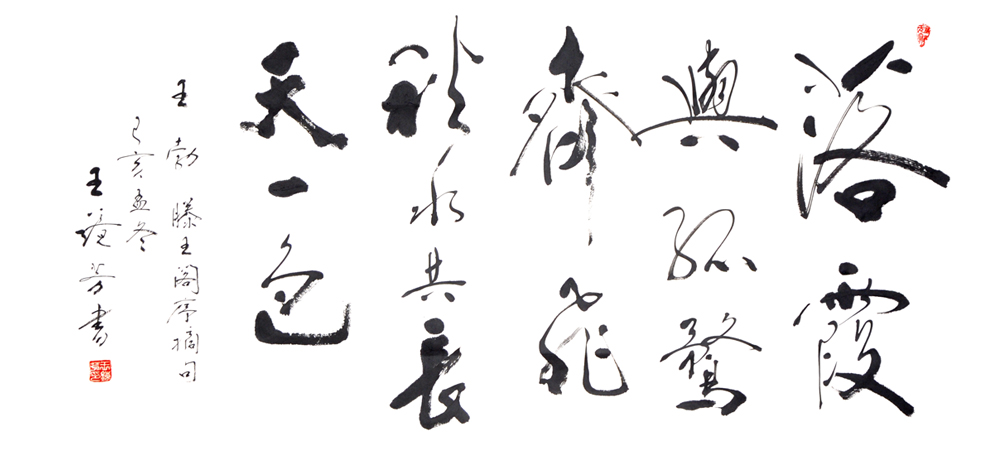 落霞
與孤鶩
齊飛
秋水共長
天一色
王勃 滕王阁序摘句
己亥孟冬
王芳書